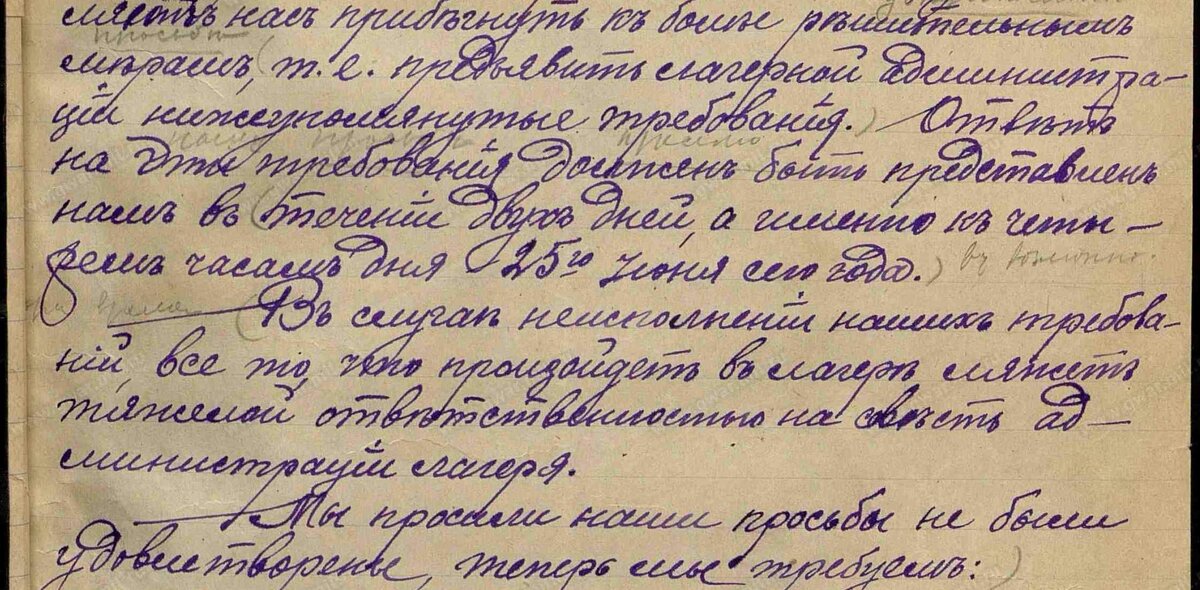 насъ прибѣгнуть къ болѣе рѣшительнымъ
мѣрамъ, (т.е. предъявить лагерной администра-
ціи нижеупомянутые требованія.) Отвѣтъ
на эти требованія долженъ быть представленъ
намъ въ (теченіи двухъ дней, а именно къ четы-
ремъ часамъ дня 25го Іюня сего года.)
(Въ случаѣ неисполненіи нашихъ требова-
ній, все то, что произойдетъ въ лагерѣ ляжетъ
тяжелой отвѣтственностью на совѣсть ад-
министраціи лагеря.
Мы просили наши просьбы не были
удовлетворены, теперь мы требуемъ:)